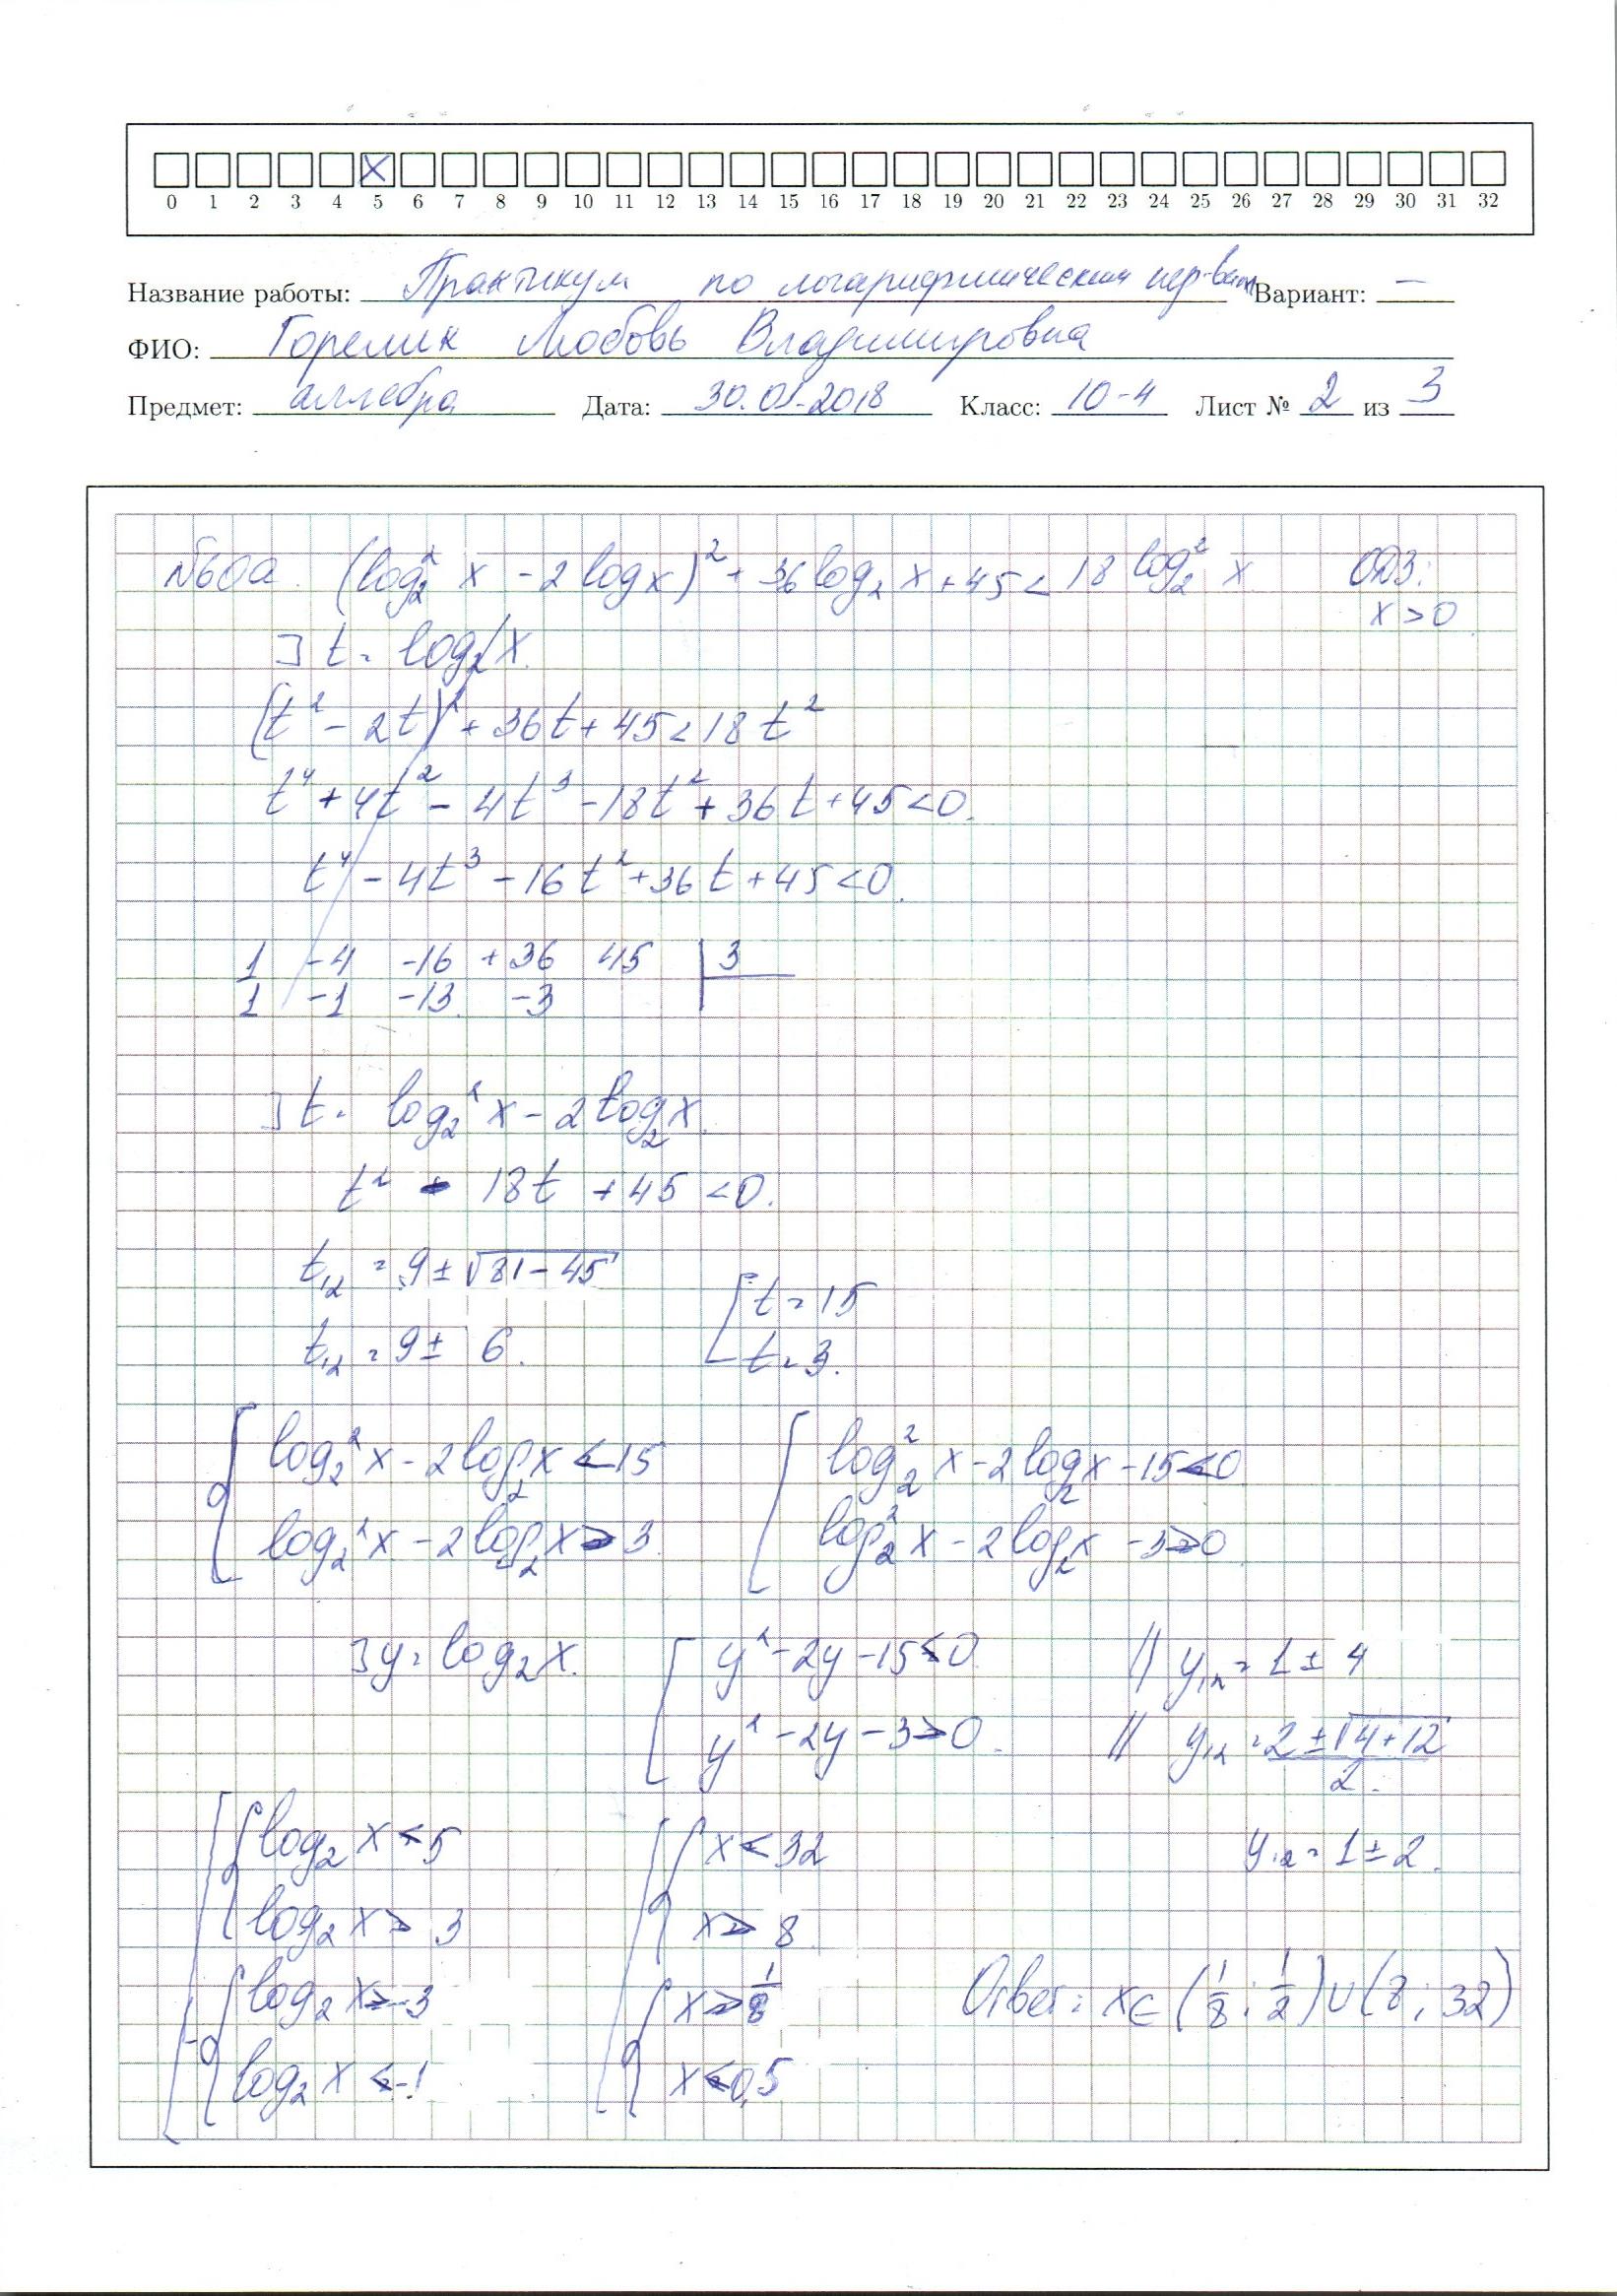 0 1 2 3 4 5 6 7 8 9 10 11 12 13 14 15 16 17 18 19 20 21 22 23 24 25 26 27 28 29 30 31 32
Название работы: Практикум по логарифмическим нер-вам Вариант: —
ФИО: Горелик Любовь Владимировна
Предмет: алгебра Дата: 30.01.2018 Класс: 10-4 Лист № 2 из 3
№60а. (log₂² x - 2 log x)² + 36 log₂ x + 45 < 18 log₂² x ОДЗ:
x > 0
∃ t = log₂ x.
(t² - 2t)² + 36t + 45 < 18 t²
t⁴ + 4t² - 4t³ - 18t² + 36t + 45 < 0.
t⁴ - 4t³ - 16t² + 36t + 45 < 0.
1 -4 -16 +36 45 | 3
1 -1 -13 -3
∃ t = log₂² x - 2 log₂ x.
t² - 18t + 45 < 0.
t₁,₂ = 9 ± √(81 - 45) [ t = 15
t₁,₂ = 9 ± 6. t = 3.
{ log₂² x - 2 log₂ x < 15 [ log₂² x - 2 log₂ x - 15 < 0
log₂² x - 2 log₂ x > 3. log₂² x - 2 log₂ x - 3 > 0
∃ y = log₂ x. [ y² - 2y - 15 < 0 // y₁,₂ = 1 ± 4
y² - 2y - 3 > 0. // y₁,₂ = (2 ± √(4 + 12))/2.
[ { log₂ x < 5 [ { x < 32 y₁,₂ = 1 ± 2.
log₂ x > 3 x > 8
{ log₂ x > -3 { x > 1/8 Ответ: x ∈ (1/8; 1/2) ∪ (8; 32)
log₂ x < -1 x < 0,5